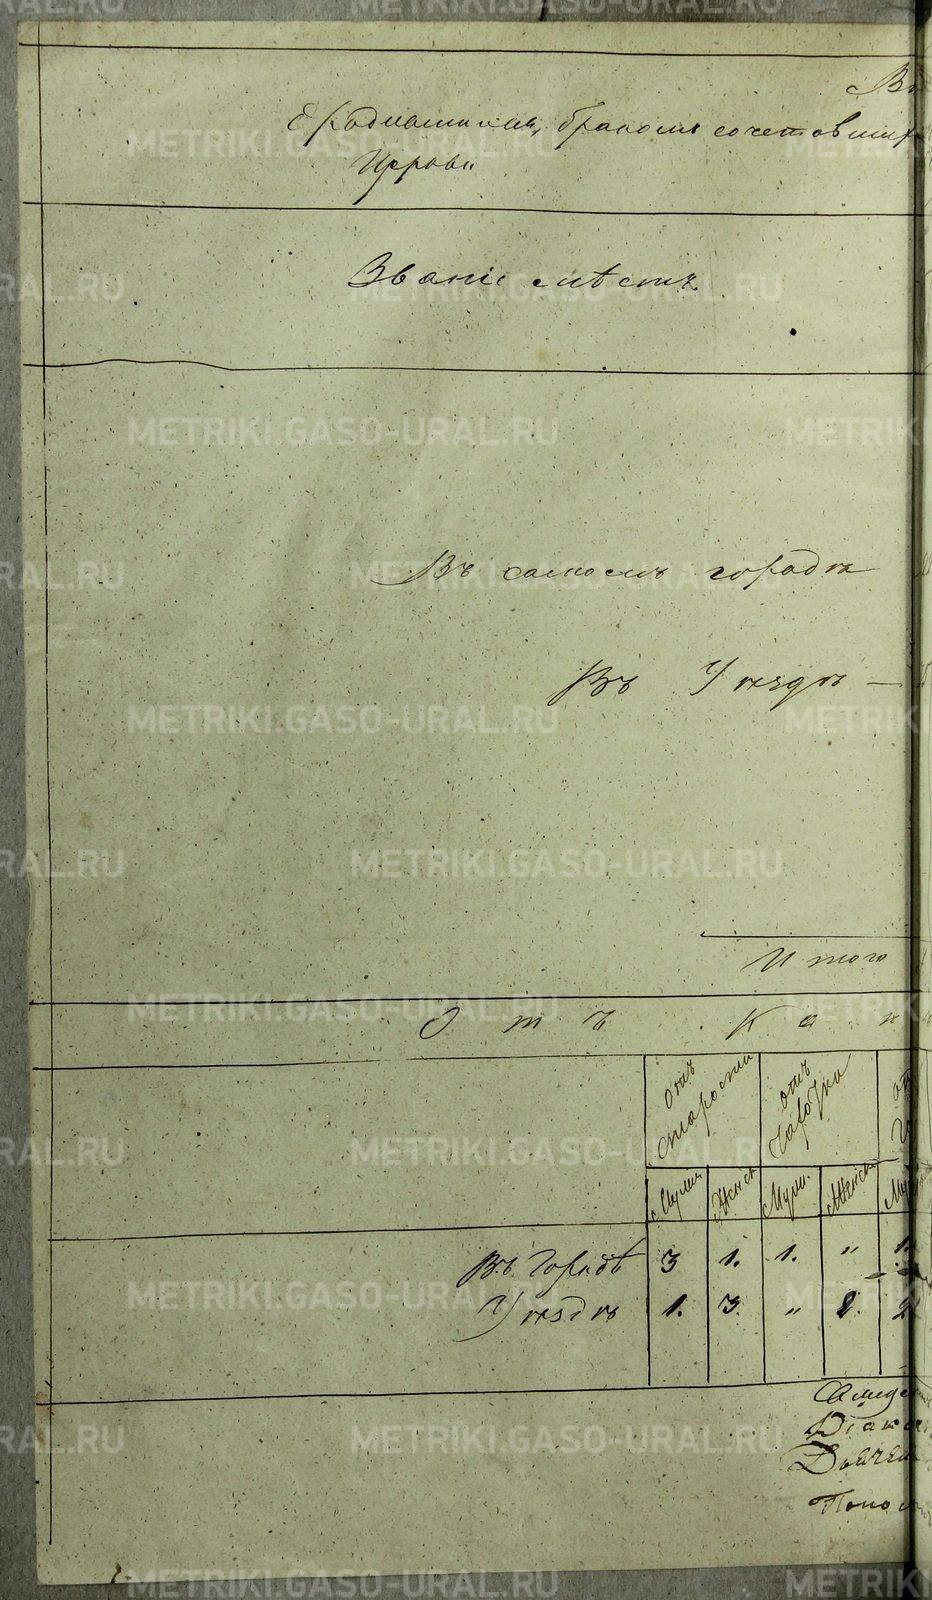 Вѣ
о Родившихся, бракомъ сочетавших
Церкви
Званіе мѣстъ.
Въ самомъ городѣ
Въ Уѣздѣ —
Итого
Отъ Ка
отъ старости
отъ
Мужс Женск Муж. Женск Му
Въ Городѣ 3 1. 1. " 1.
Уѣздѣ 1. 3. " 2. 2
Діако
Дьячек
Поном
METRIKI.GASO-URAL.RU